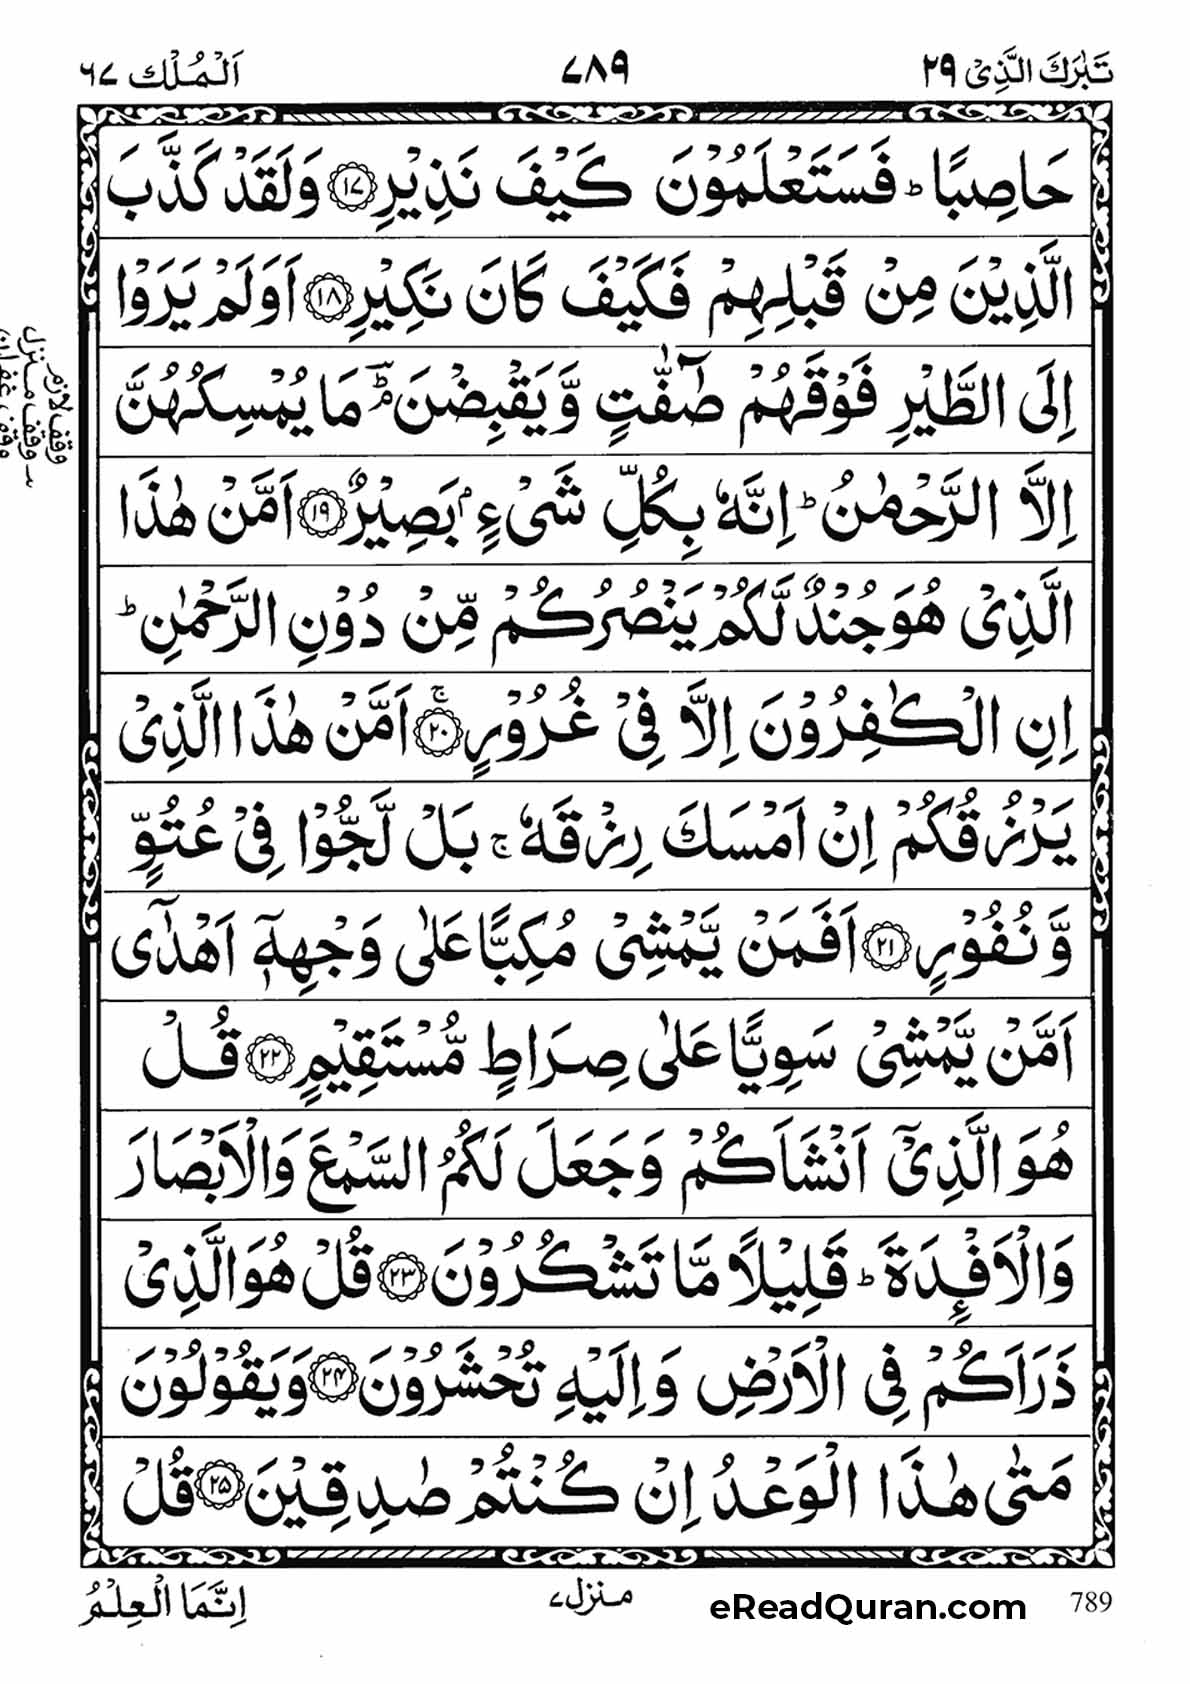 تَبٰرَكَ الَّذِیْ ۲۹
۷۸۹
اَلْمُلْك ۶۷
حَاصِبًا ؕ فَسَتَعْلَمُوْنَ كَیْفَ نَذِیْرِ ۝۱۷ وَلَقَدْ كَذَّبَ
الَّذِیْنَ مِنْ قَبْلِهِمْ فَكَیْفَ كَانَ نَكِیْرِ ۝۱۸ اَوَلَمْ یَرَوْا
اِلَی الطَّیْرِ فَوْقَهُمْ صٰٓفّٰتٍ وَّیَقْبِضْنَ ؔۘؕ مَا یُمْسِكُهُنَّ
اِلَّا الرَّحْمٰنُ ؕ اِنَّهٗ بِكُلِّ شَیْءٍۭ بَصِیْرٌ ۝۱۹ اَمَّنْ هٰذَا
الَّذِیْ هُوَ جُنْدٌ لَّكُمْ یَنْصُرُكُمْ مِّنْ دُوْنِ الرَّحْمٰنِ ؕ
اِنِ الْكٰفِرُوْنَ اِلَّا فِیْ غُرُوْرٍ ۝۲۰ ۚ اَمَّنْ هٰذَا الَّذِیْ
یَرْزُقُكُمْ اِنْ اَمْسَكَ رِزْقَهٗ ۚ بَلْ لَّجُّوْا فِیْ عُتُوٍّ
وَّنُفُوْرٍ ۝۲۱ اَفَمَنْ یَّمْشِیْ مُكِبًّا عَلٰی وَجْهِهٖۤ اَهْدٰۤی
اَمَّنْ یَّمْشِیْ سَوِیًّا عَلٰی صِرَاطٍ مُّسْتَقِیْمٍ ۝۲۲ قُلْ
هُوَ الَّذِیْۤ اَنْشَاَكُمْ وَجَعَلَ لَكُمُ السَّمْعَ وَالْاَبْصَارَ
وَالْاَفْـِٕدَةَ ؕ قَلِیْلًا مَّا تَشْكُرُوْنَ ۝۲۳ قُلْ هُوَ الَّذِیْ
ذَرَاَكُمْ فِی الْاَرْضِ وَاِلَیْهِ تُحْشَرُوْنَ ۝۲۴ وَیَقُوْلُوْنَ
مَتٰی هٰذَا الْوَعْدُ اِنْ كُنْتُمْ صٰدِقِیْنَ ۝۲۵ قُلْ
وقف لازم
وقف منزل
وقف غفران
789
eReadQuran.com
منزل ۷
اِنَّمَا الْعِلْمُ